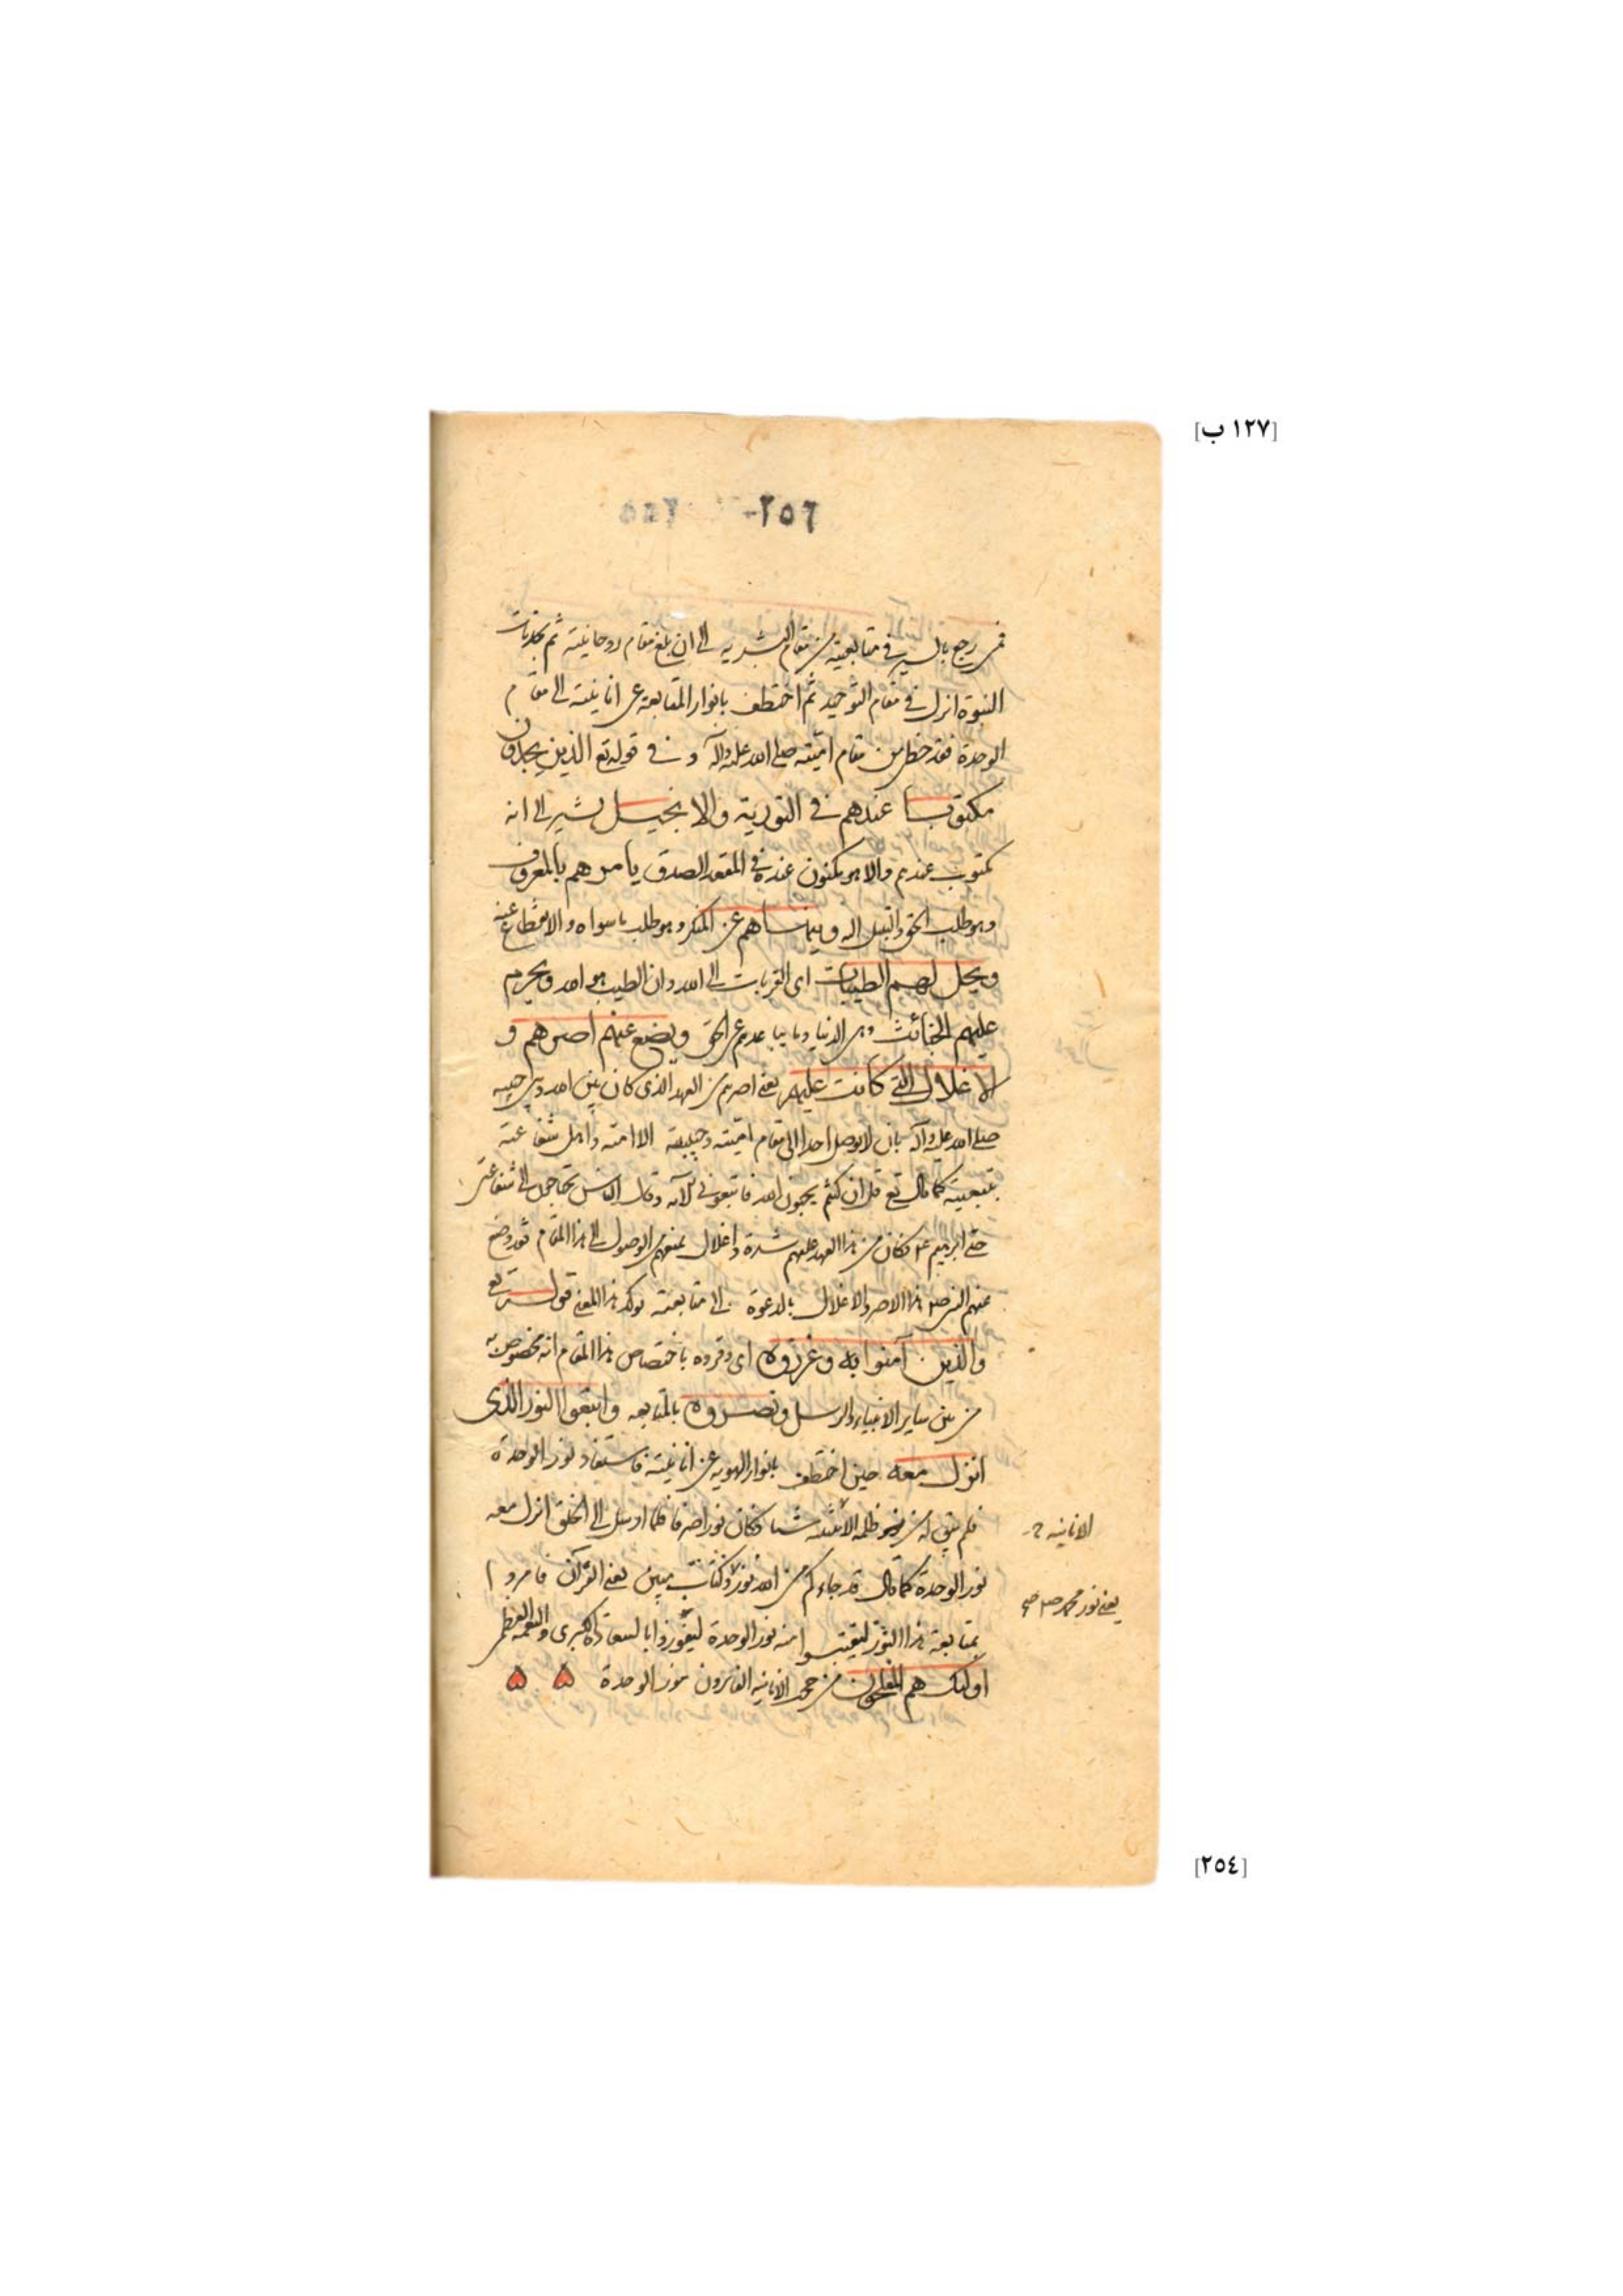 [١٢٧ ب]
٢٥٦
فمن رجع بالسير في متابعيته من مقام البشريه الى ان بلغ مقام روحانيته ثم بجذبات
النبوة انزل في مقام التوحيد ثم اختطف بانوار المتابعة عن انانيته الى مقام
الوحدة فقد حظى من مقام اميّته صلى الله عليه وآله و في قوله تع الذين يجدون
مكتوبا عندهم في التورية والانجيل يشير الى انه
مكتوب عندهم والا هو مكنون عنده في المقعد الصدق يامرهم بالمعروف
وهو طلب الحق والتبتل اليه وينهاهم عن المنكر وهو طلب ماسواه والانقطاع عنه
ويحل لهم الطيبات اى القربات الى الله وان الطيب هو الله ويحرم
عليهم الخبائث وهى الدنيا وما يباعدهم عن الحق ويضع عنهم اصرهم و
الاغلال التي كانت عليهم يعنى اصرهم من العهد الذى كان بين الله وبين حبيبه
صلى الله عليه وآله بان لا يوصل احدا الى مقام اميّته وحبيبيته الا امته واهل شفاعته
بتبعيته كما قال تع قل ان كنتم تحبون الله فاتبعونى الآيه وقال الناس يحتاجون الى شفاعتى
حتى ابرهيم ع فكان من هذا العهد عليهم شدة واغلال يمنعهم من الوصول الى هذا المقام فقد وضع
عنهم النبى ص هذا الاصر والاغلال بالدعوة الى متابعته يوكد هذا المعنى قوله تع
والذين آمنوا به وعزروه اى وقروه باختصاص هذا المقام انه مخصوص به
من بين ساير الانبياء والرسل ونصروه بالمتابعه واتبعوا النور الذى
انزل معه حين اختطف بانوار الهويه عن انانيته فاستفاد نور الوحدة
فلم يبق له من ظلمة شيئا فكان نورا صرفا فلما ارسل الى الخلق انزل معه
الانانيه
نور الوحدة كما قال قد جاءكم من الله نور وكتاب مبين يعنى القرآن فامروا
يعنى نور محمد ص
بمتابعة هذا النور ليقتبسوا منه نور الوحدة ليفوزوا بالسعادة الكبرى والنعمة العظمى
اولئك هم المفلحون من حجب الانانيه الفائزون بنور الوحدة
[٢٥٤]